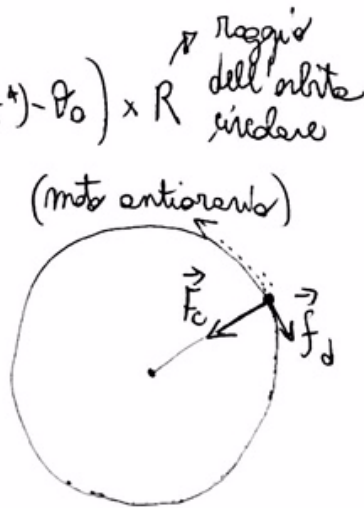 raggio
dell'orbita
circolare
⁴)-θ₀) × R
(moto antiorario)
F⃗c
f⃗d